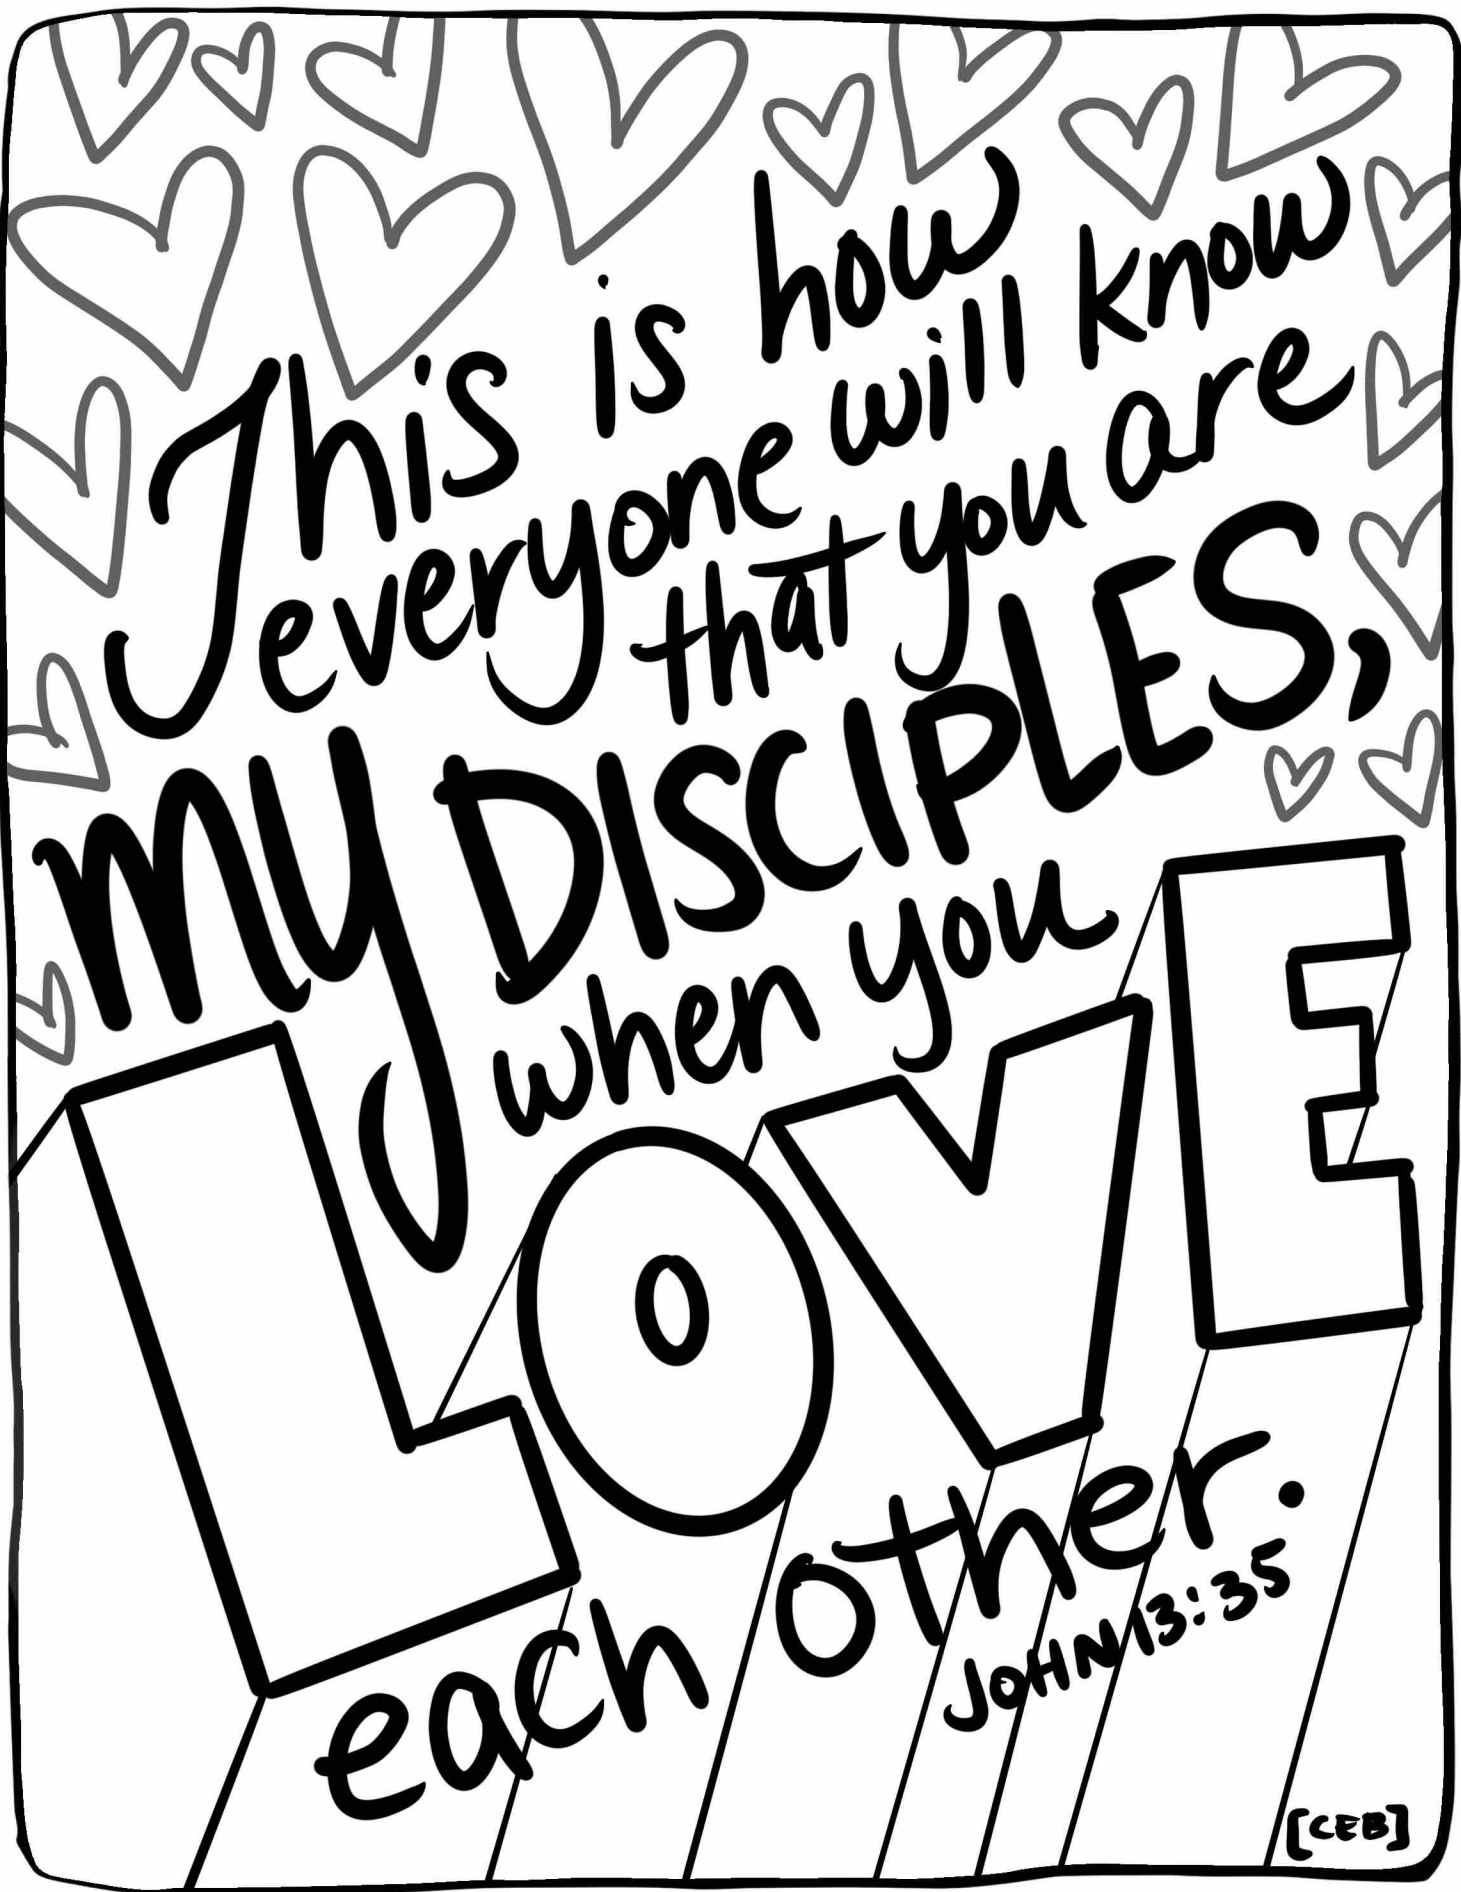 This is how
everyone will know
that you are
my DISCIPLES,
when you
LOVE
each other.
JOHN 13:35
[CEB]